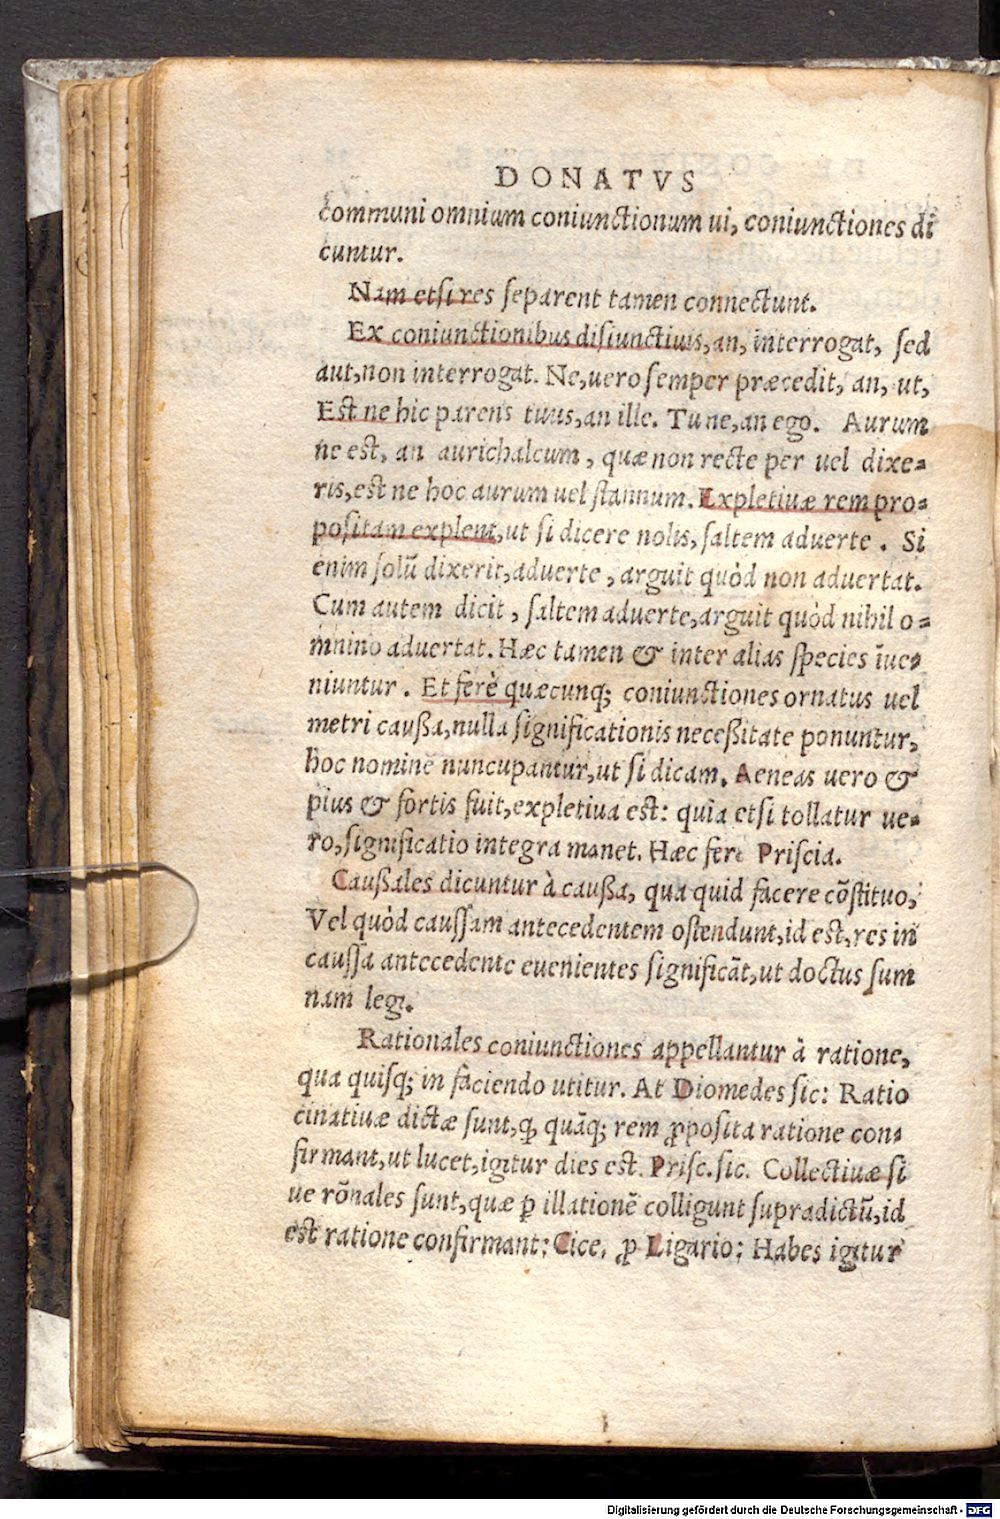 DONATVS
communi omnium coniunctionum ui, coniunctiones di
cuntur.
Nam etsi res separent tamen connectunt.
Ex coniunctionibus disiunctiuis, an, interrogat, sed
aut, non interrogat. Ne, uero semper præcedit, an, ut,
Est ne hic parens tuus, an ille. Tu ne, an ego. Aurum
ne est, an aurichalcum, quæ non recte per uel dixe=
ris, est ne hoc aurum uel stannum. Expletiuæ rem pro=
positam explent, ut si dicere nolis, saltem aduerte. Si
enim solũ dixerit, aduerte, arguit quòd non aduertat.
Cum autem dicit, saltem aduerte, arguit quòd nihil o=
mnino aduertat. Hæc tamen & inter alias species īue=
niuntur. Et ferè quæcunq; coniunctiones ornatus uel
metri caußa, nulla significationis neceßitate ponuntur,
hoc nomine nuncupantur, ut si dicam. Aeneas uero &
pius & fortis fuit, expletiua est: quia etsi tollatur ue=
ro, significatio integra manet. Hæc fere Priscia.
Caußales dicuntur à caußa, qua quid facere cõstituo,
Vel quòd caussam antecedentem ostendunt, id est, res in
caussa antecedente euenientes significãt, ut doctus sum
nam legi.
Rationales coniunctiones appellantur à ratione,
qua quisq; in faciendo utitur. At Diomedes sic: Ratio
cinatiuæ dictæ sunt, ꝙ quãq; rem ꝓposita ratione con=
firmant, ut lucet, igitur dies est. Prisc. sic. Collectiuæ si
ue rõnales sunt, quæ ꝑ illationẽ colligunt supradictũ, id
est ratione confirmant: Cice. ꝓ Ligario: Habes igitur
Digitalisierung gefördert durch die Deutsche Forschungsgemeinschaft - DFG